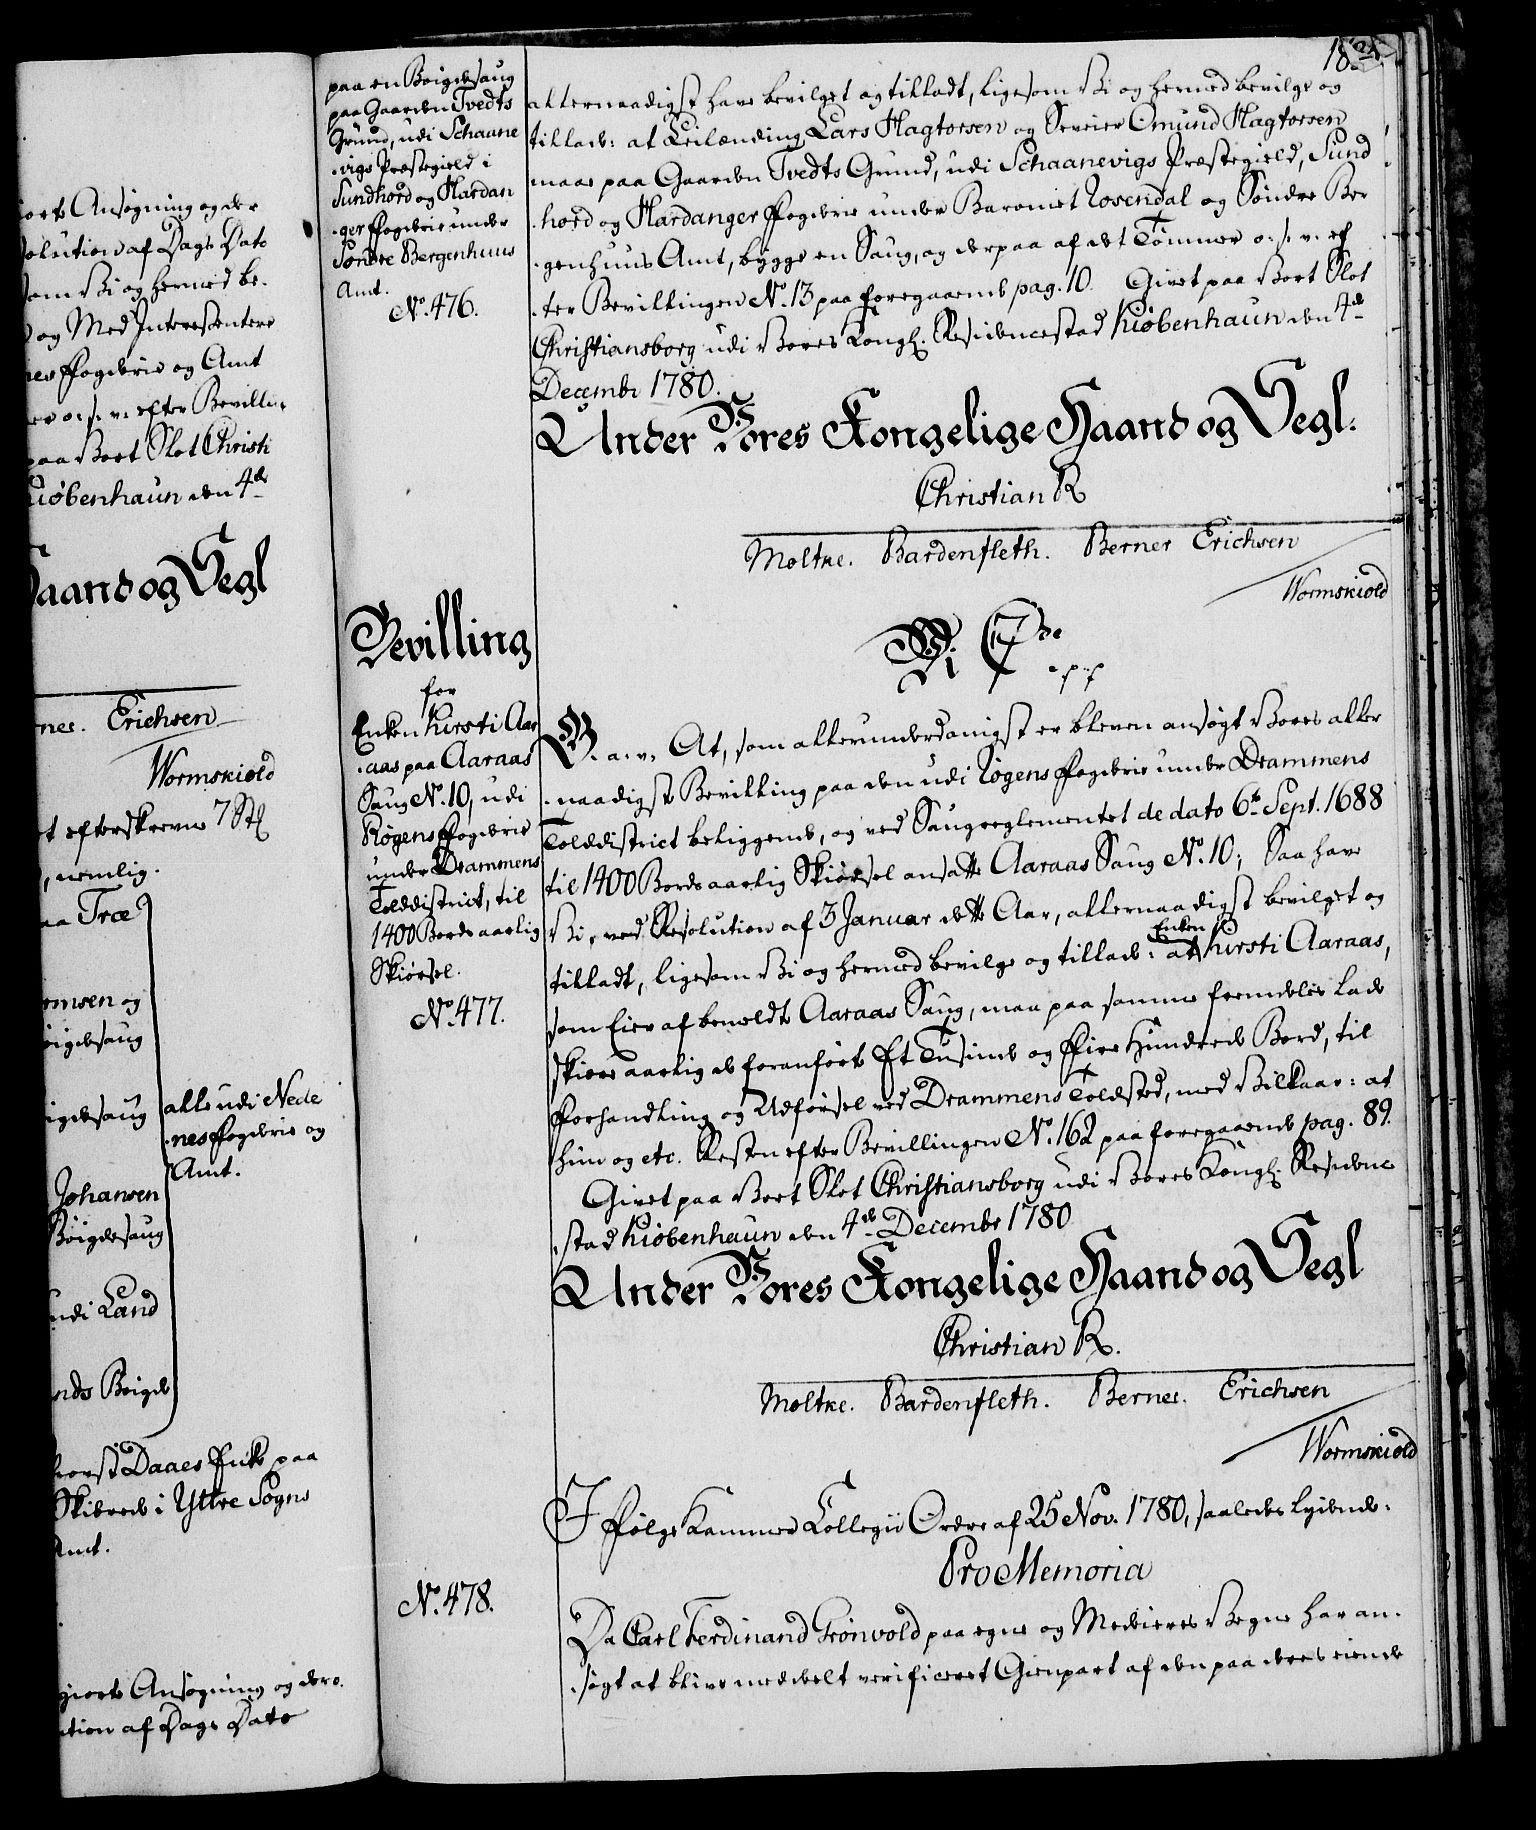 iorte Ansøgning og der
solution af Dags Dato
som Vi og hermed be-
og Med Interessentere
nes Fogderie og Amt
er o. s. v. efter Bevillin
paa Vort Slot Christi
Kiøbenhaun den 4de
Haand og Segl
ner. Erichsen
Wormskiold
t efterskrevne 7 St
, nemlig.
aa Træ
omsen og
øigdesaug
igdesaug
alle udi Nede
-nes Fogderie og
Amt.
Johansen
Bøigdesaug
udi Land
nds Bøigde
Daaes Enke paa
Skibrede i Yttre Sogns
Amt.
giorte Ansøgning og der
ution af Dags Dato
paa en Bøigdesaug
paa Gaarden Tvedts
Grund, udi Schaane
-vigs Præstegield i
Sundhord og Hardan
-ger Fogderie under
Søndre Bergenhuus
Amt.
No. 476.
18
allernaadigst have bevilget og tilladt, ligesom Vi og hermed bevilge og
tillade: at Leilænding Lars Hagtorsen og Svoger Omund Hagtorsen
maae paa Gaarden Tvedts Grund, udi Schaanevigs Præstegield, Sund
-hord og Hardanger Fogderie under Baroniet Rosendal og Søndre Ber
-genhuus Amt, bygge en Saug, og derpaa af det Tømmer o. s. v. ef
-ter Bevillingen No. 13 paa foregaaende pag. 10. Givet paa Vort Slot
Christiansborg udi Vores Kongl. Residencestad Kiøbenhaun den 4de
Decembr 1780.
Under Vores Kongelige Haand og Segl.
Christian R
Moltke. Bardenfleth. Berner Erichsen
Wormskiold
Bevilling
for
Enken Kirsti Aar
-aas paa Aaraas
Saug No. 10, udi
Røgens Fogderie
under Drammens
Tolddistrict, til
1400 Bords aarlig
Skiørsel.
No. 477.
Vi C 7de
G. a. v. At, som allerunderdanigst er bleven ansøgt Vores aller
-naadigste Bevilling paa den udi Røgens Fogderie under Drammens
Tolddistrict beliggende, og ved Saugreglementet de dato 6te Sept. 1688
til 1400 Bords aarlig Skiørsel ansatte Aaraas Saug No. 10; Saa have
Vi, ved Resolution af 3 Januar dette Aar, allernaadigst bevilget og
tilladt, ligesom Vi og hermed bevilge og tillade: at Enken Kirsti Aaraas,
som Eier af bemeldte Aaraas Saug, maa paa samme fremdeles lade
skiære aarlig de foranførte Et Tusinde og Fire Hundrede Bord, til
Forhandling og Udførsel ved Drammens Toldsted, med Vilkaar: at
hun og etc. Resten efter Bevillingen No. 162 paa foregaaende pag. 89.
Givet paa Vort Slot Christiansborg udi Vores Kongl. Residence
-stad Kiøbenhaun den 4de Decembr 1780
Under Vores Kongelige Haand og Segl
Christian R.
Moltke. Bardenfleth. Berner. Erichsen
Wormskiold
No. 478.
I Følge Kammer Collegii Ordre af 25 Nov. 1780, saaledes lydende:
Pro Memoria
Da Carl Ferdinand Grönvold paa egne og Medeieres Vegne har an-
-søgt at blive meddeelt verificeret Gienpart af den paa deres eiende